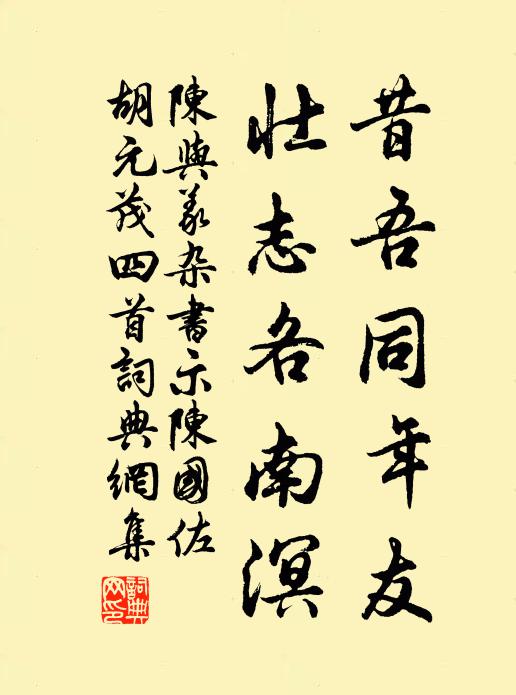 昔吾同年友
壮志各南溟
陳與義杂書示陳國佐
胡元茂四首詞典網集
詞典網印